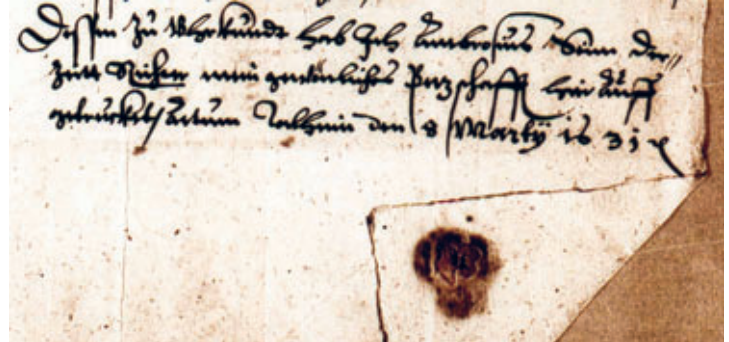 Dessen zu Uhrkundt hab Ich Ambrosius Senn der„
Zeitt Richter mein gewonliches Pezschafft hier auff
getruckt Actum Dalheim den 8 Martÿ 1631